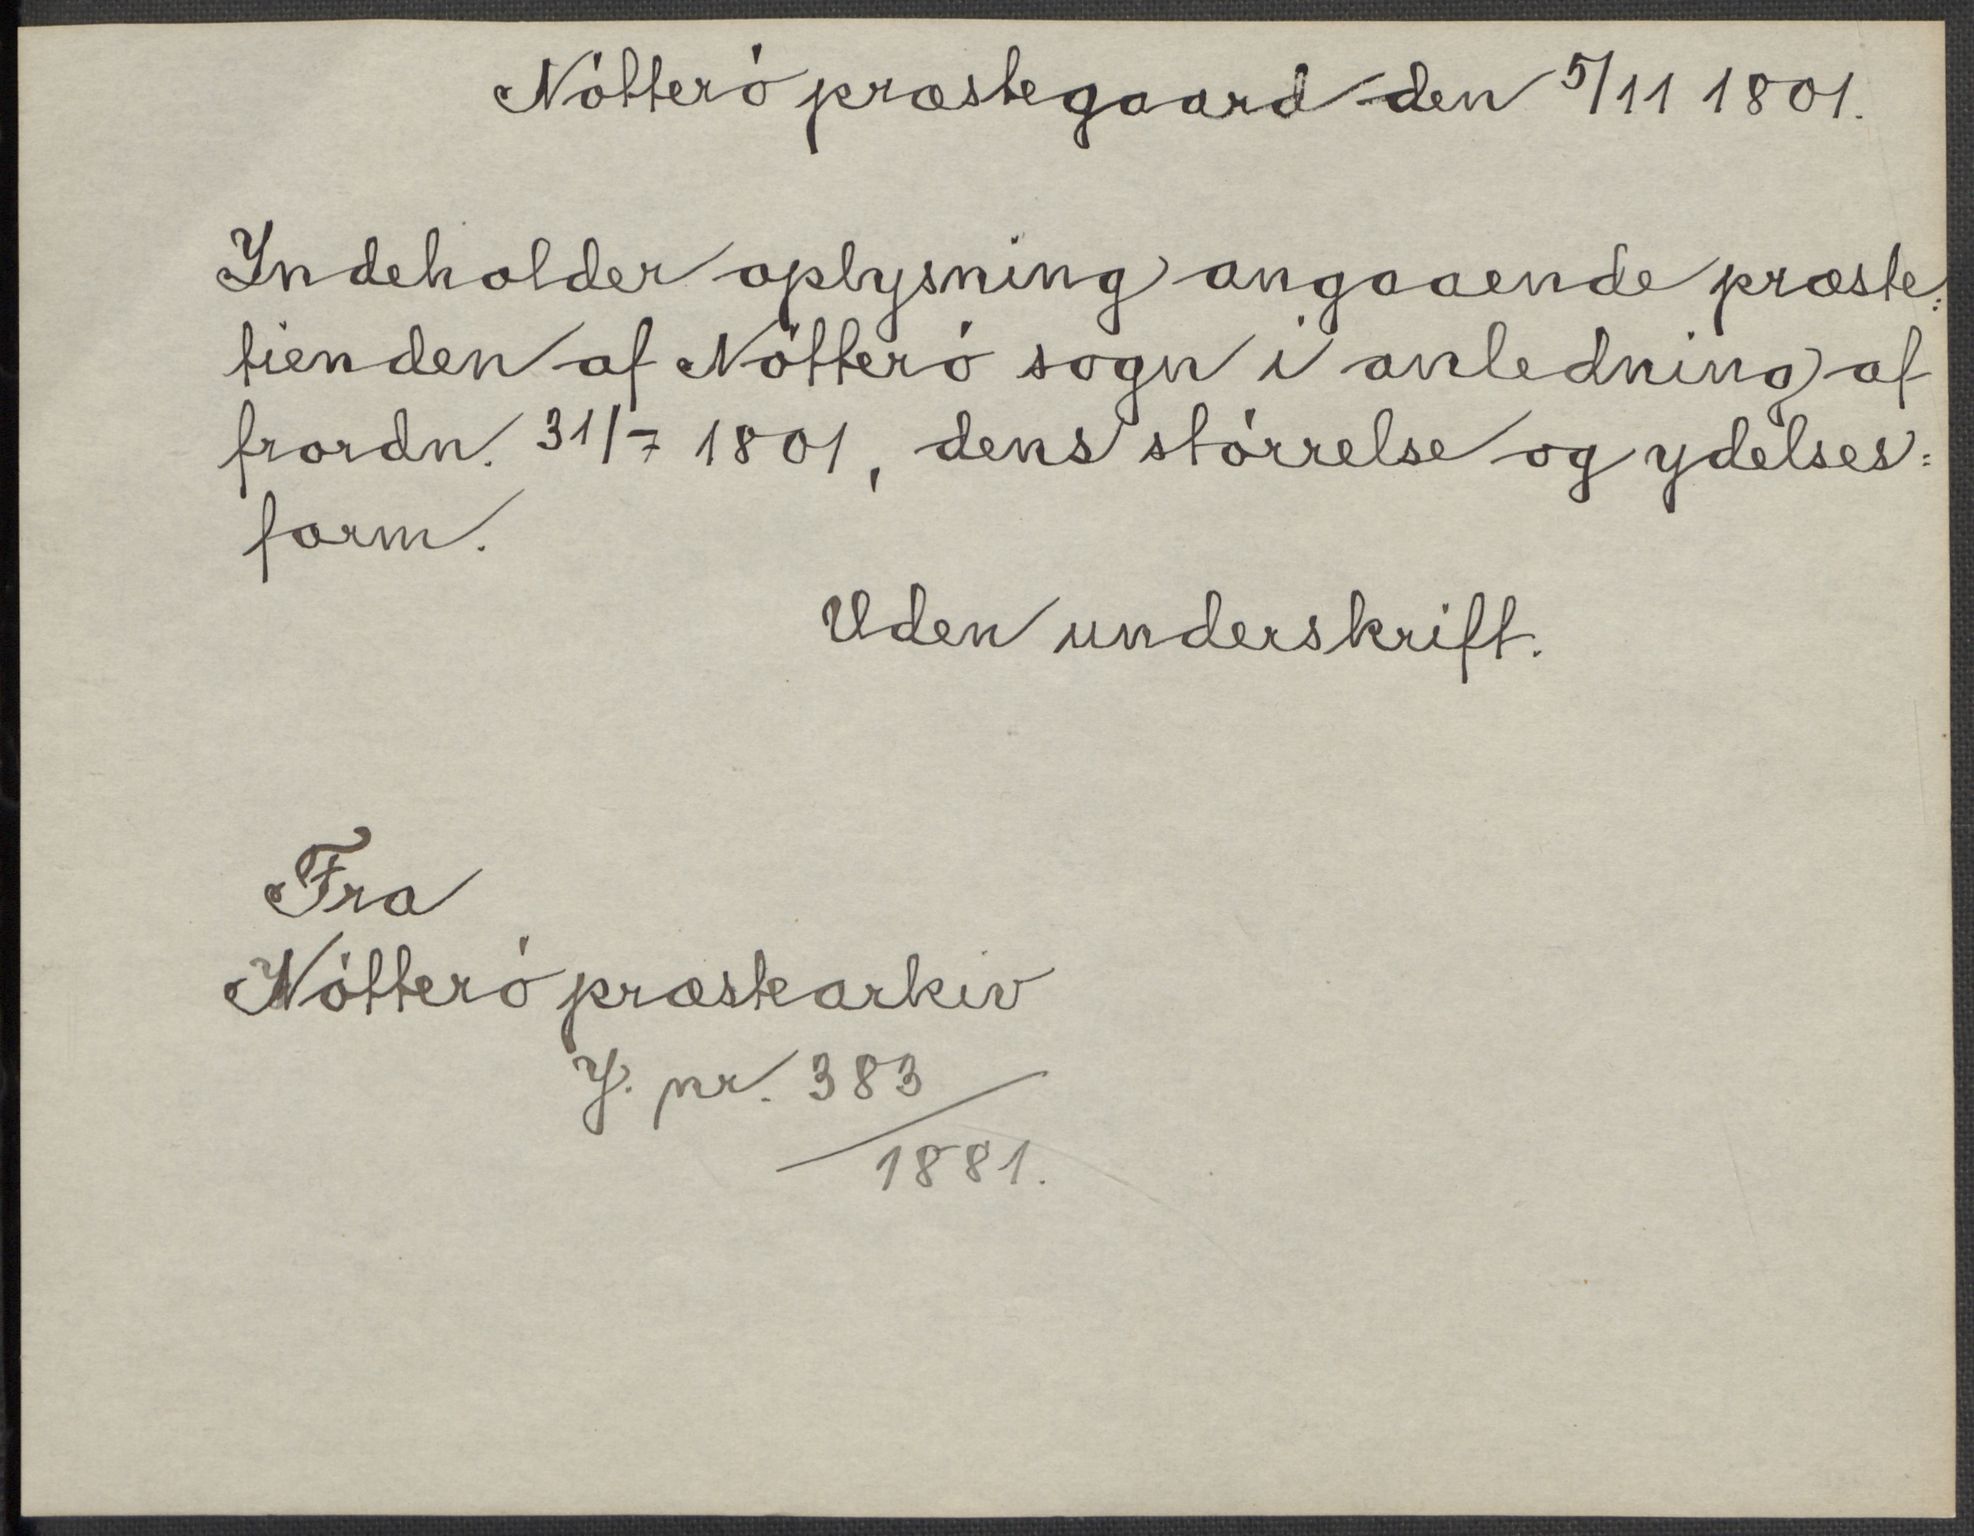 Nötterö præstegaard den 5/11 1801.
Indeholder oplysning angaaende præste=
tienden af Nötterö sogn i anledning af
frordn. 31/7 1801, dens störrelse og ydelses=
form.
Uden underskrift.
Fra
Nötterö præstearkiv
J. nr. 383
1881.